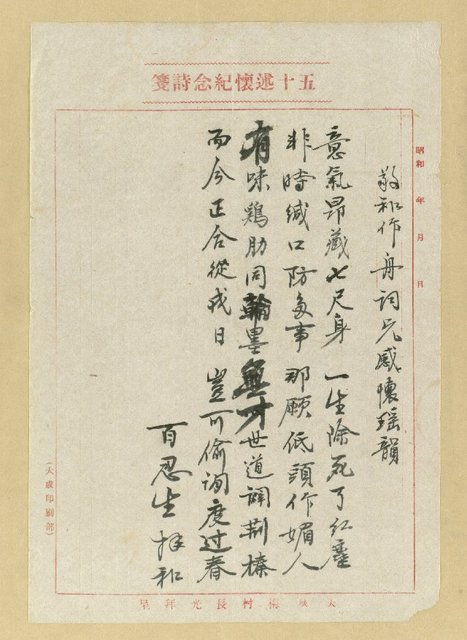 五十述懷紀念詩箋
昭和 年 月 日
敬和作舟詞兄感懷瑶韻
意氣昂藏七尺身 一生除死了紅塵
非時緘口防多事 那願低頭作媚人
有味鷄肋同翰墨 無才世道闢荆榛
而今正合從戎日 豈可偷度过春
百忍生拜和
(大成印刷部)
村長光拜呈